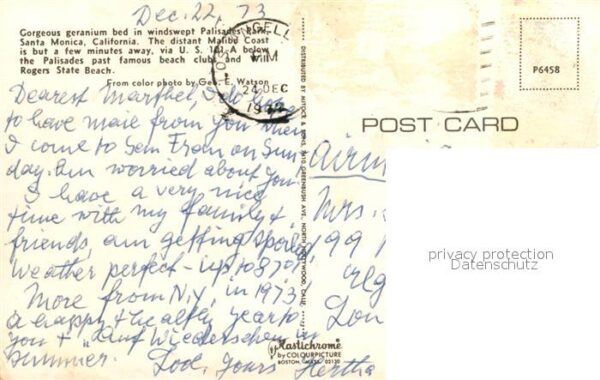 Dec. 22, 73
Gorgeous geranium bed in windswept Palisades Park,
Santa Monica, California. The distant Malibu Coast
is but a few minutes away, via U.S. 101-A below
the Palisades past famous beach clubs and Will
Rogers State Beach.
From color photo by Geo. E. Watson
GELL
PM
24 DEC
P6458
POST CARD
DISTRIBUTED BY MITOCK & SONS, GREENBUSH AVE., NORTH HOLLYWOOD, CALIF.
Dearest Marthel, I do hope
to have mail from you when
I come to San Fran on Sun
day. Am worried about you.
I have a very nice
time with my family &
friends, am getting spoiled,
Weather perfect - up to 870!
More from N.Y, in 1973!
A happy & healthy year to
you & "Auf Wiedersehen in
summer. Love, Yours Hertha
airm
Mrs.
991
Lon
privacy protection
Datenschutz
Plastichrome
by COLOURPICTURE
BOSTON, MASS. 02130